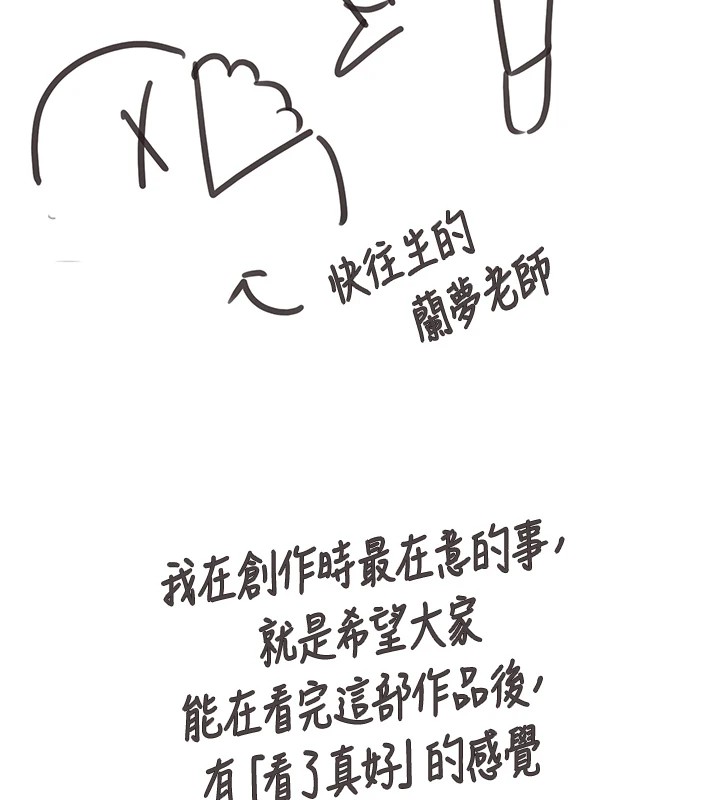 快往生的
蘭夢老師
我在創作時最在意的事，
就是希望大家
能在看完這部作品後，
有「看了真好」的感覺